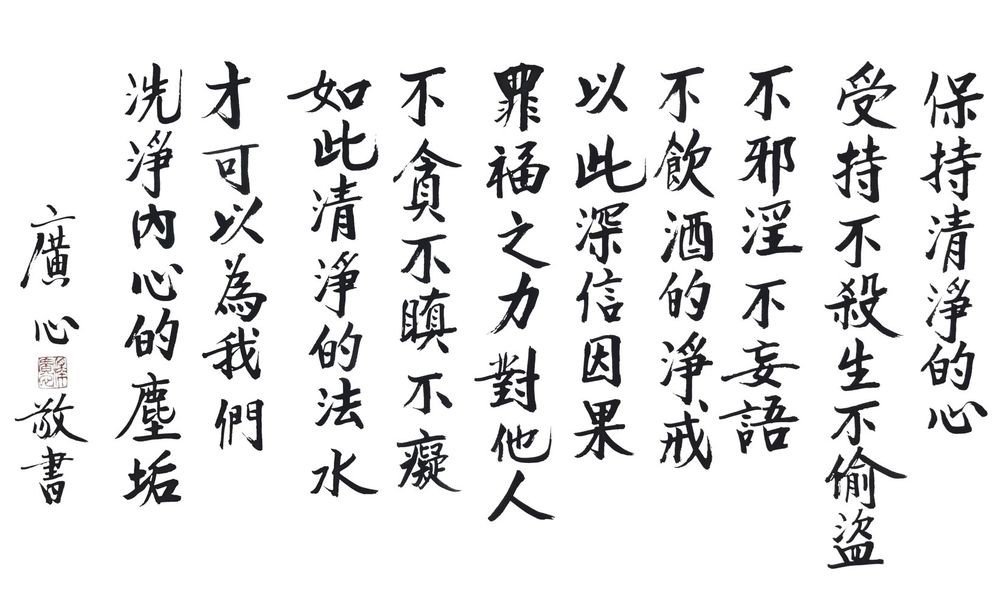 保持清淨的心
受持不殺生不偷盜
不邪淫不妄語
不飲酒的淨戒
以此深信因果
罪福之力對他人
不貪不瞋不癡
如此清淨的法水
才可以為我們
洗淨內心的塵垢
廣心敬書